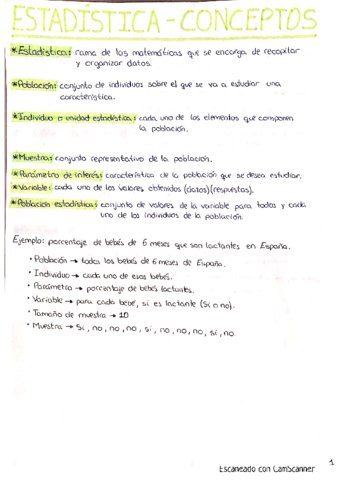 ESTADÍSTICA - CONCEPTOS
*Estadística: rama de las matemáticas que se encarga de recopilar
y organizar datos.
*Población: conjunto de individuos sobre el que se va a estudiar una
característica.
*Individuo o unidad estadística: cada uno de los elementos que componen
la población.
*Muestra: conjunto representativo de la población.
*Parámetro de interés: característica de la población que se desea estudiar.
*Variable: cada uno de los valores obtenidos (datos)(respuestas).
*Población estadística: conjunto de valores de la variable para todos y cada
uno de los individuos de la población.
Ejemplo: porcentaje de bebés de 6 meses que son lactantes en España.
• Población → todos los bebés de 6 meses de España.
• Individuo → cada uno de esos bebés.
• Parámetro → porcentaje de bebés lactantes.
• Variable → para cada bebé, si es lactante (Sí o no).
• Tamaño de muestra → 10
• Muestra → Sí, no, no, no, sí, no, no, no, sí, no.
1
Escaneado con CamScanner